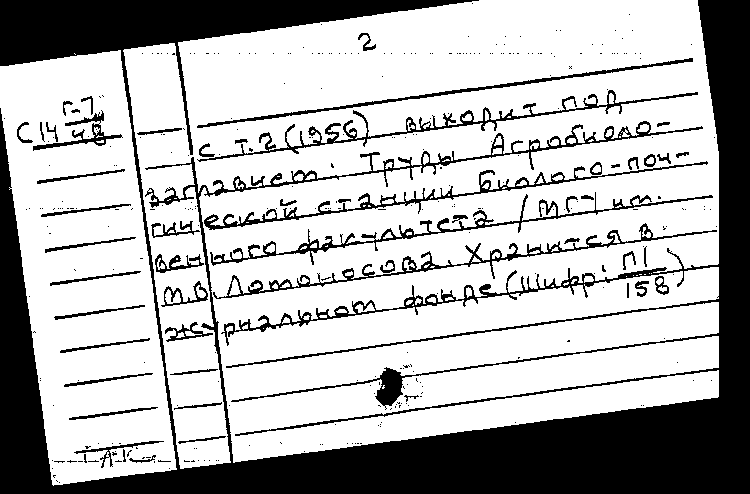 2
Г-7
С14 48
с т.2 (1956) выходит под
заглавием: Труды Агробиоло-
гической станции Биолого-поч-
венного факультета / МГУ им.
М.В. Ломоносова. Хранится в
журнальном фонде (Шифр: П1
158).
Т.А.К.